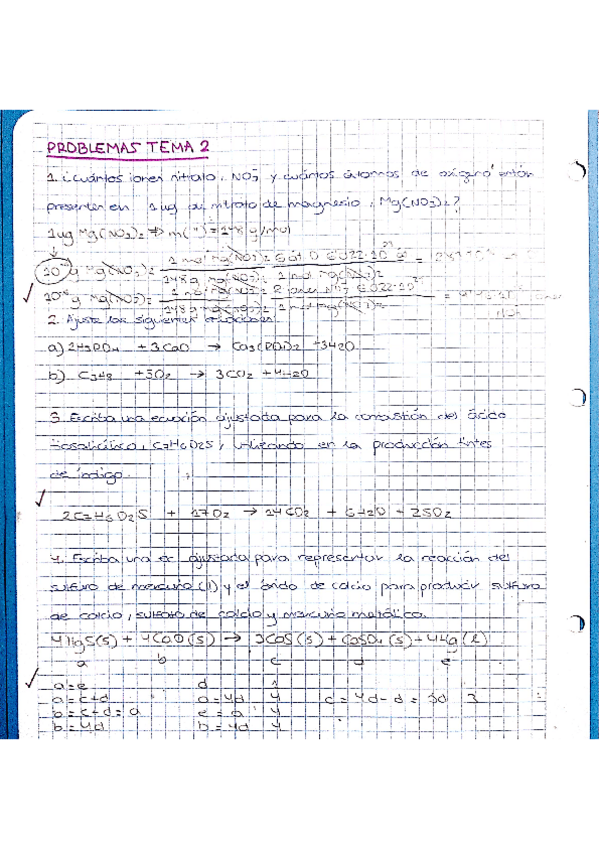 PROBLEMAS TEMA 2
1. ¿Cuántos iones nitrato, NO3-, y cuántos átomos de oxígeno están
presentes en 1 µg de nitrato de magnesio, Mg(NO3)2?
1µg Mg(NO3)2 => m( ) = 148 g/mol
10-6 g Mg(NO3)2 · 1 mol Mg(NO3)2 / 148 g Mg(NO3)2 · 6 át O 6'022·10 23 / 1 mol Mg(NO3)2 =
10-6 g Mg(NO3)2 · 1 mol Mg(NO3)2 / 148 g Mg(NO3)2 · 2 iones NO3 6'022·10 23 / 1 mol Mg(NO3)2 =
2. Ajuste las siguientes
a) 2H3PO4 + 3CaO → Ca3(PO4)2 + 3H2O
b) C3H8 + 5O2 → 3CO2 + 4H2O
3. Escriba una ecuación ajustada para la combustión del ácido
tiosalicílico, C7H6O2S, utilizando en la producción tintes
de índigo.
2C7H6O2S + 17O2 → 14CO2 + 6H2O + 2SO2
4. Escriba una ec. ajustada para representar la reacción del
sulfuro de mercurio (II) y el óxido de calcio para producir sulfuro
de calcio, sulfato de calcio y mercurio metálico.
4HgS(s) + 4CaO(s) → 3CaS(s) + CaSO4(s) + 4Hg(l)
a b c d e
a = e d 1
a = c+d a = 4d 4 c = 4d - d = 3d 3
b = c+d = a e = a 4
b = 4d b = 4d 4